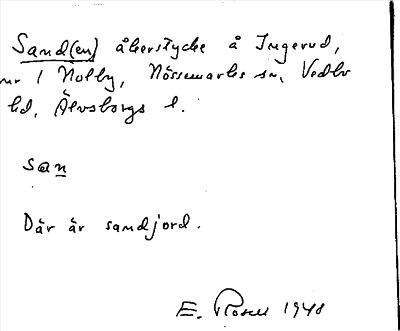 Sand(en) åkerstycke å Ingerud,
nr 1 Nolby, Nössemarks sn, Vedbo
hd, Älvsborgs l.
san
Där är sandjord.
E. Rosell 1940